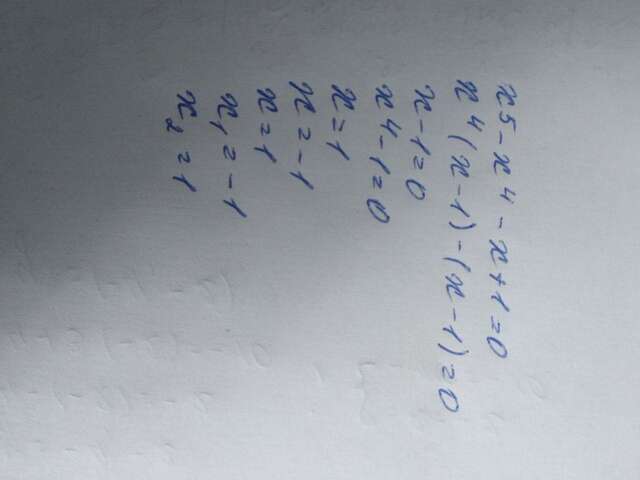 x5-x4-x+1=0
x4(x-1)-(x-1)=0
x-1=0
x4-1=0
x=1
x=-1
x=1
x1=-1
x2=1